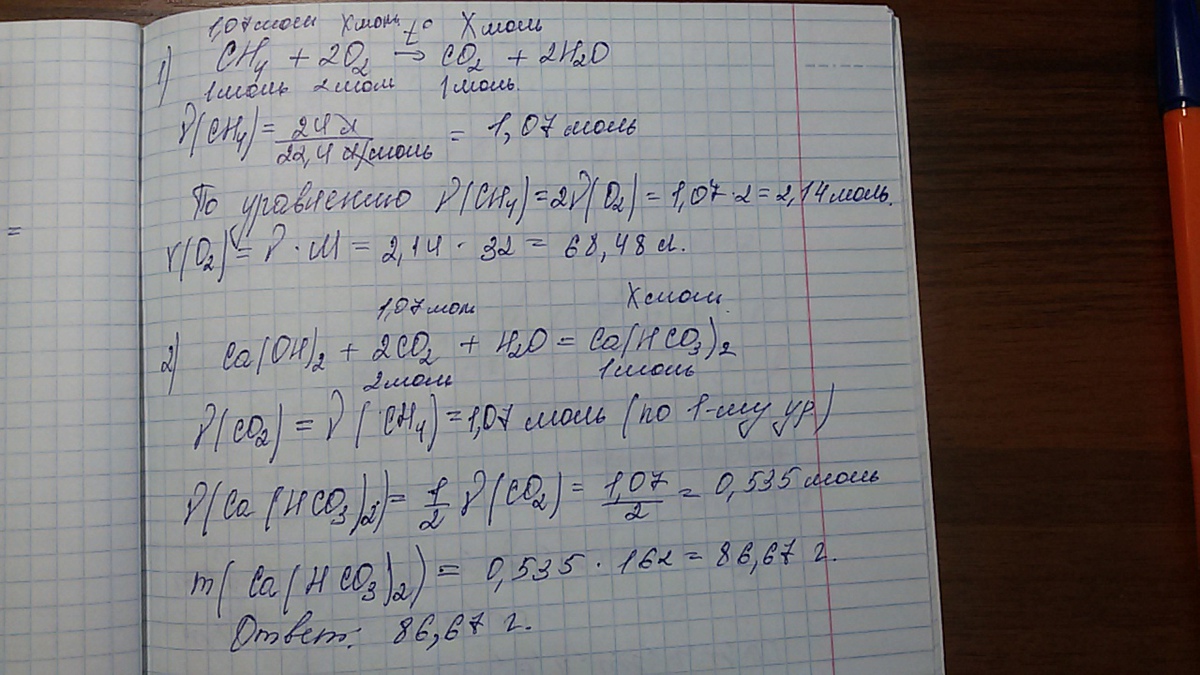 1,07 моль X моль t° X моль
1) CH₄ + 2O₂ → CO₂ + 2H₂O
1 моль 2 моль 1 моль.
ν(CH₄) = 24 л / 22,4 л/моль = 1,07 моль
По уравнению ν(CH₄) = 2ν(O₂) = 1,07 · 2 = 2,14 моль.
V(O₂) = ν · M = 2,14 · 32 = 68,48 л.
1,07 моль X моль
2) Ca(OH)₂ + 2CO₂ + H₂O = Ca(HCO₃)₂
2 моль 1 моль
ν(CO₂) = ν(CH₄) = 1,07 моль (по 1-му ур)
ν(Ca(HCO₃)₂) = 1/2 ν(CO₂) = 1,07/2 = 0,535 моль
m(Ca(HCO₃)₂) = 0,535 · 162 = 86,67 г.
Ответ: 86,67 г.
=